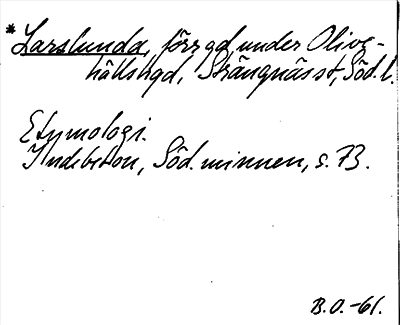 *Larslunda, förr gd under Olive-
hällshgd, Strängnäs st, Söd. l.
Etymologi.
Indebetou, Söd. minnen, s. 73.
B.O.-61.